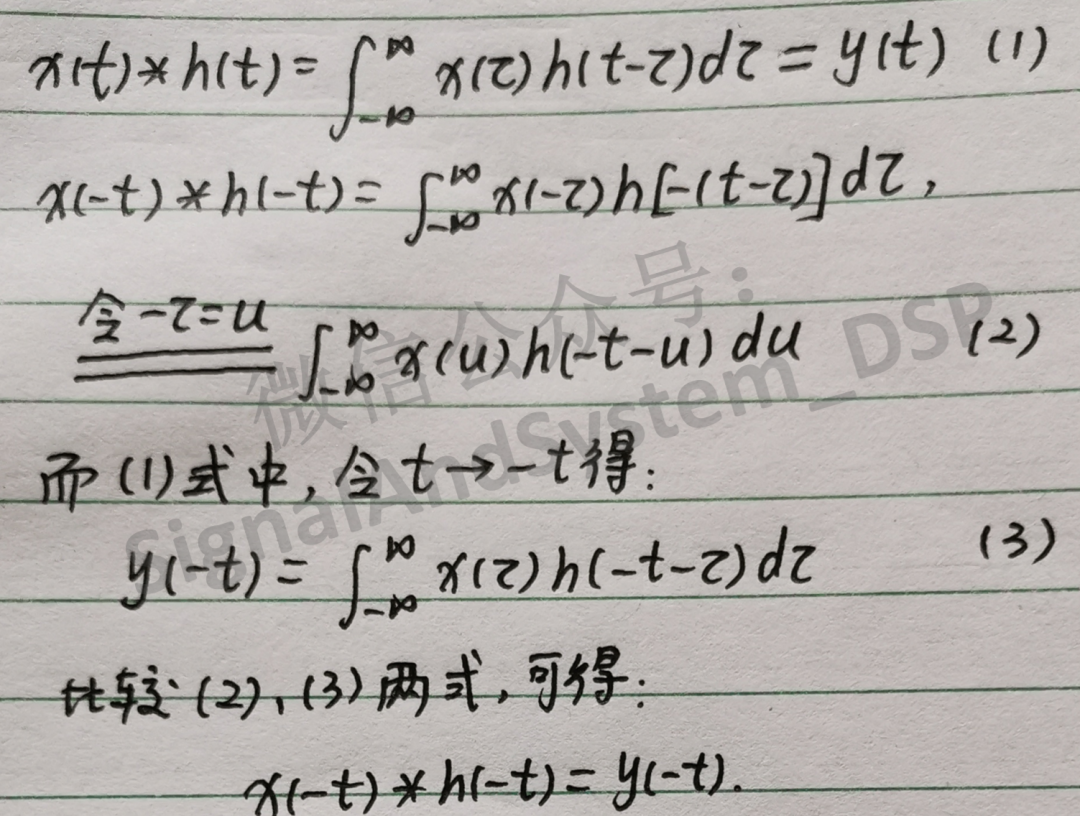 x(t)*h(t)=∫_{-∞}^{∞} x(τ)h(t-τ)dτ=y(t) (1)
x(-t)*h(-t)=∫_{-∞}^{∞} x(-τ)h[-(t-τ)]dτ,
令-τ=u ∫_{-∞}^{∞} x(u)h(-t-u)du (2)
微信公众号：
SignalAndSystem_DSP
而(1)式中,令t→-t得:
y(-t)=∫_{-∞}^{∞} x(τ)h(-t-τ)dτ (3)
比较(2)、(3)两式,可得:
x(-t)*h(-t)=y(-t).